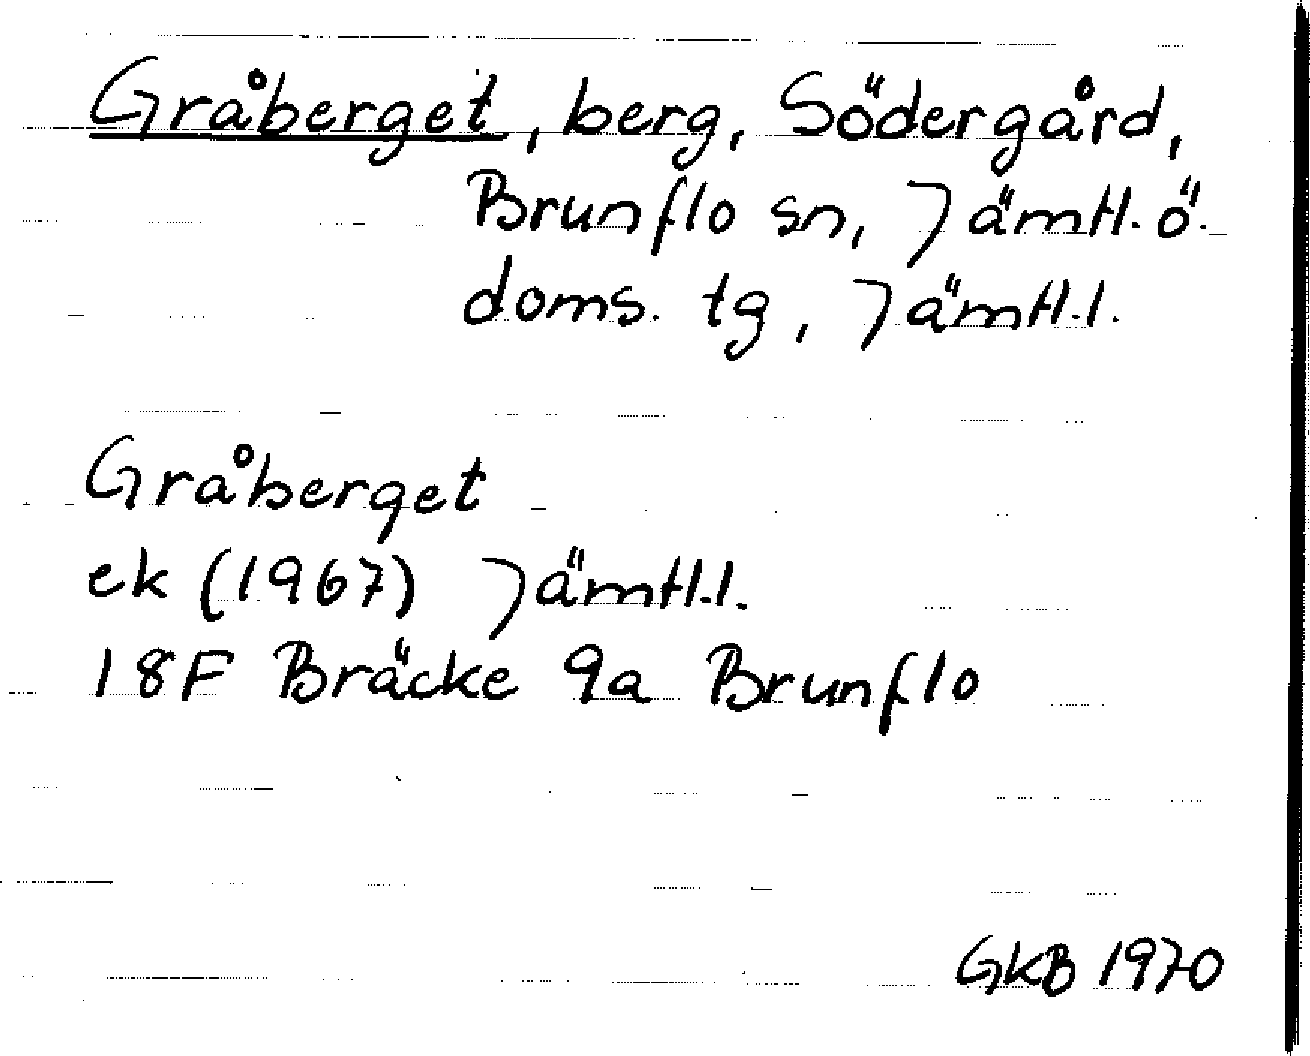 Gråberget, berg, Södergård,
Brunflo sn, Jämtl. ö.
doms. tg, Jämtl.l.
Gråberget
ek (1967) Jämtl.l.
18F Bräcke 9a Brunflo
GKB 1970